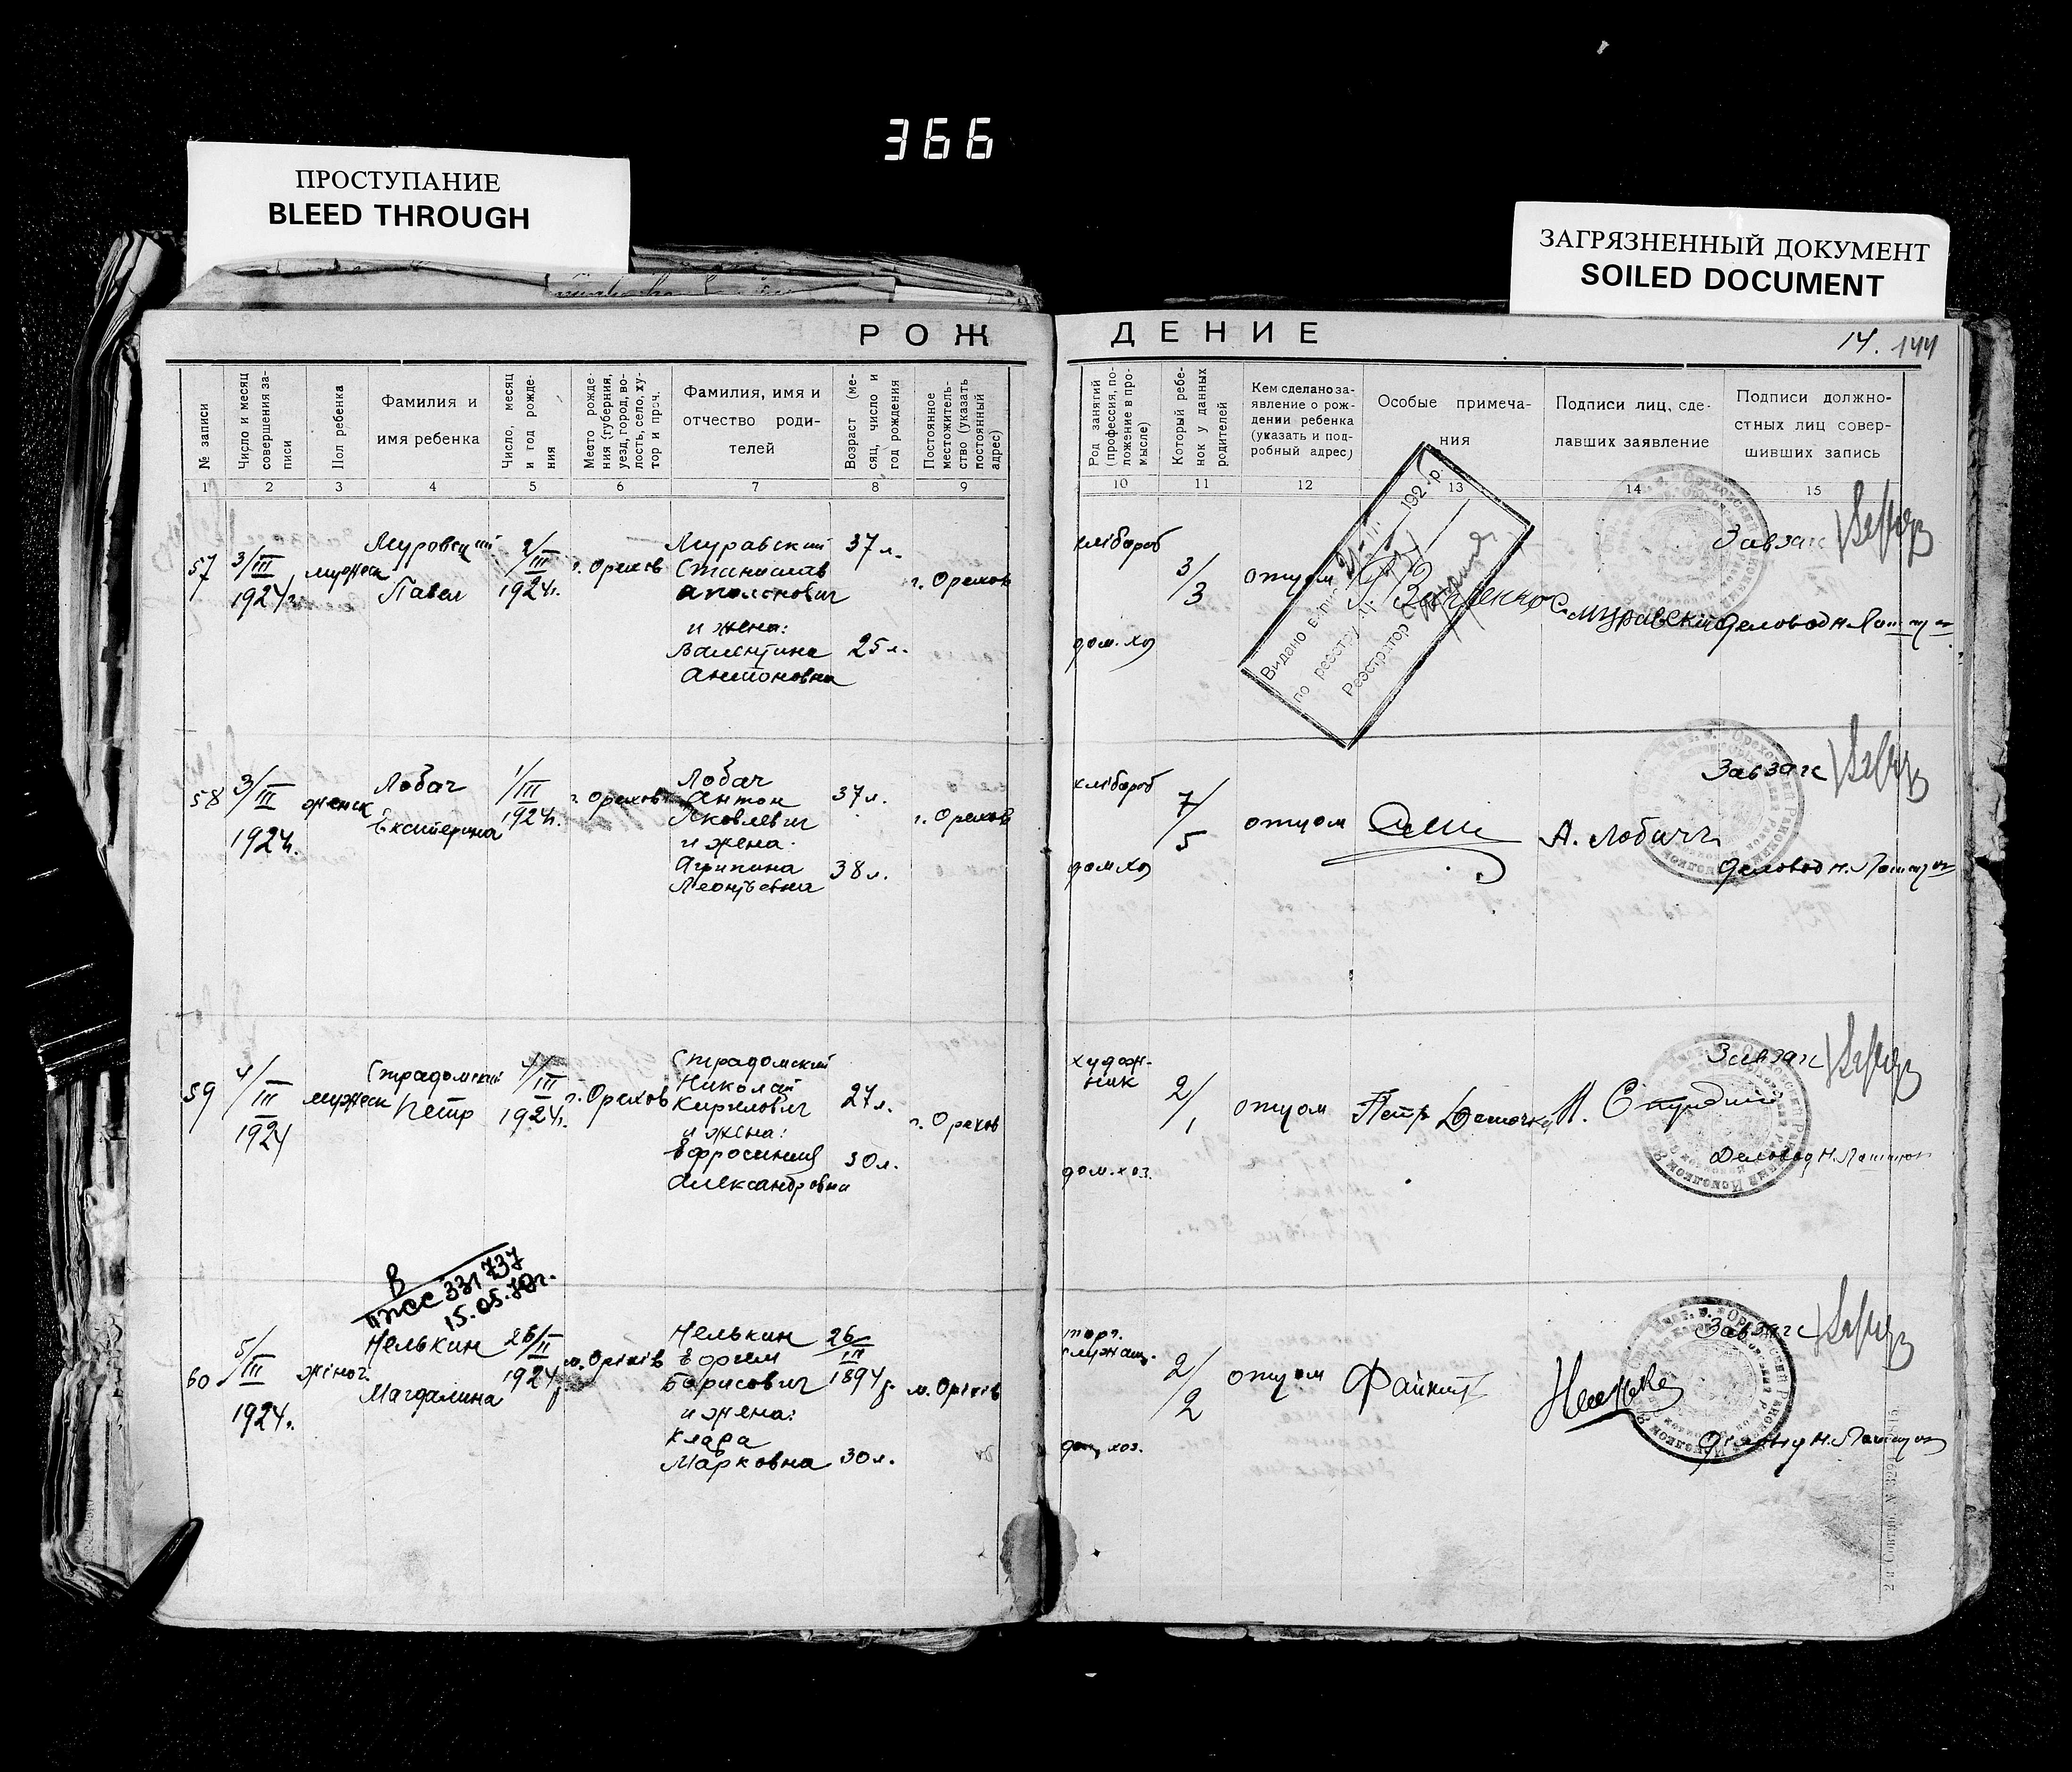 366
ПРОСТУПАНИЕ
BLEED THROUGH
ЗАГРЯЗНЕННЫЙ ДОКУМЕНТ
SOILED DOCUMENT
РОЖ
ДЕНИЕ
14. 144
№ записи
Число и месяц
совершения за-
писи
Пол ребенка
Фамилия и
имя ребенка
Число, месяц
и год рожде-
ния
Место рожде-
ния (губерния,
уезд, город, во-
лость, село, ху-
тор и проч.
Фамилия, имя и
отчество роди-
телей
Возраст (ме-
сяц, число и
год рождения
Постоянное
местожитель-
ство (указать
постоянный
адрес)
Род занятий
(профессия, по-
ложение в про-
мысле)
Который ребе-
нок у данных
родителей
Кем сделано за-
явление о рож-
дении ребенка
(указать и под-
робный адрес)
Особые примеча-
ния
Подписи лиц, сде-
лавших заявление
Подписи должно-
стных лиц совер-
шивших запись
1 2 3 4 5 6 7 8 9
10 11 12 13 14 15
57
3/III
1924г.
мужеск
Муровский
Павел
2/III
1924г.
г. Орехов
Муравский
Станислав
Аполонович
и жена:
Валентина
Антоновна
37 л.
25 л.
г. Орехов
хлібороб
дом. хоз
3/3
отцом
Видано
по реєстру №
Реєстратор
192 р.
С. Муравский
Завзагс
Деловод Н.
58
3/III
1924г.
женск
Лобач
Екатерина
1/III
1924г.
г. Орехов
Лобач
Антон
Яковлевич
и жена
Агрипина
Леонтьевна
37 л.
38 л.
г. Орехов
хлібороб
дом. хоз
7/5
отцом
А. Лобач
Завзагс
Деловод Н.
59
4/III
1924
мужеск
Страдомский
Петр
4/III
1924г.
г. Орехов
Страдомский
Николай
Кирилович
и жена:
Ефросиния
Александровна
27 л.
30 л.
г. Орехов
худож-
ник
дом. хоз.
2/1
отцом
Петр
Завзагс
Деловод Н.
В
331737
15.05.
60
5/III
1924г.
жіноч.
Нелькин
Магдалина
26/II
1924р
м. Оріхів
Нелькин
Ефрем
Борисович
и жена:
Клара
Марковна
26/III
1894р
30 л.
м. Оріхів
торг.
служащ.
дом. хоз.
2/2
отцом
Завзагс
Н.